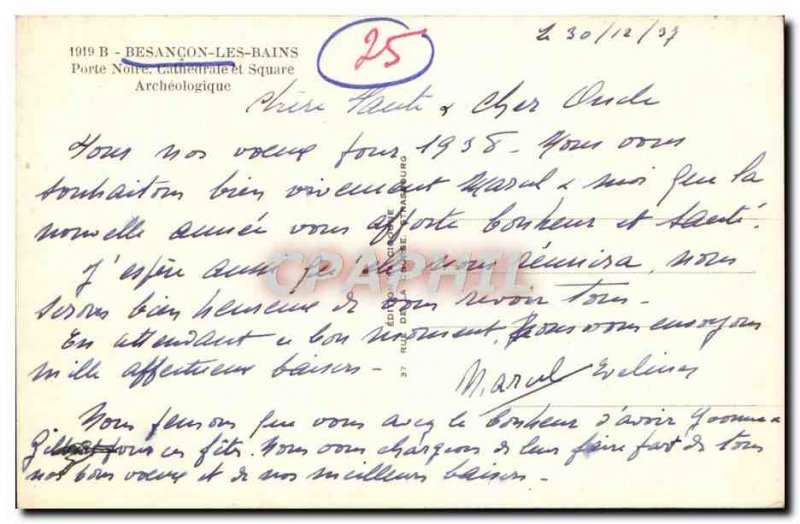 1919 B - BESANÇON-LES-BAINS
Porte Noire. Cathédrale et Square
Archéologique
25
le 30/12/37
Chère Tante & Cher Oncle
Tous nos voeux pour 1938 - Nous vous
souhaitons bien vivement Marcel & moi que la
nouvelle année vous apporte bonheur et santé.
J'espère aussi qu'elle nous réunira, nous
serons bien heureux de vous revoir tous -
En attendant ce bon moment, nous vous envoyons
mille affectueux baisers -
Marcel Evelines
Nous pensons que vous avez le bonheur d'avoir Yvonne &
pour ces fêtes. Nous vous chargeons de leur faire part de tous
nos bons voeux et de nos meilleurs baisers -
37 RUE DE LA COURSE. STRASBOURG
CPAPHIL